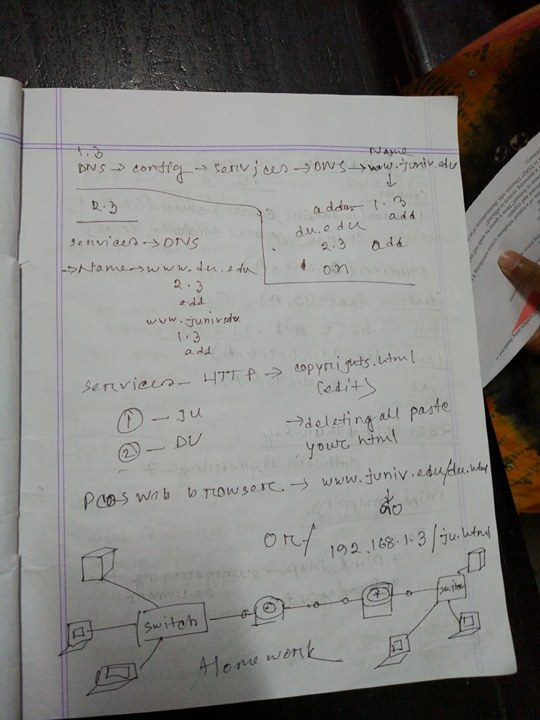 1.3
DNS → config → services → DNS → Name
www.juniv.edu
addr – 1.3
add
du.edu
2.3 add
on
2.3
services → DNS
→ Name → www.du.edu
2.3
add
www.juniv.edu
1.3
add
services – HTTP → copyrights.html
(edit)
① – JU
② – DU
→ deleting all paste
your html
PC → web browser → www.juniv.edu/du.html
go
or/
192.168.1.3/ju.html
switch
switch
Home work